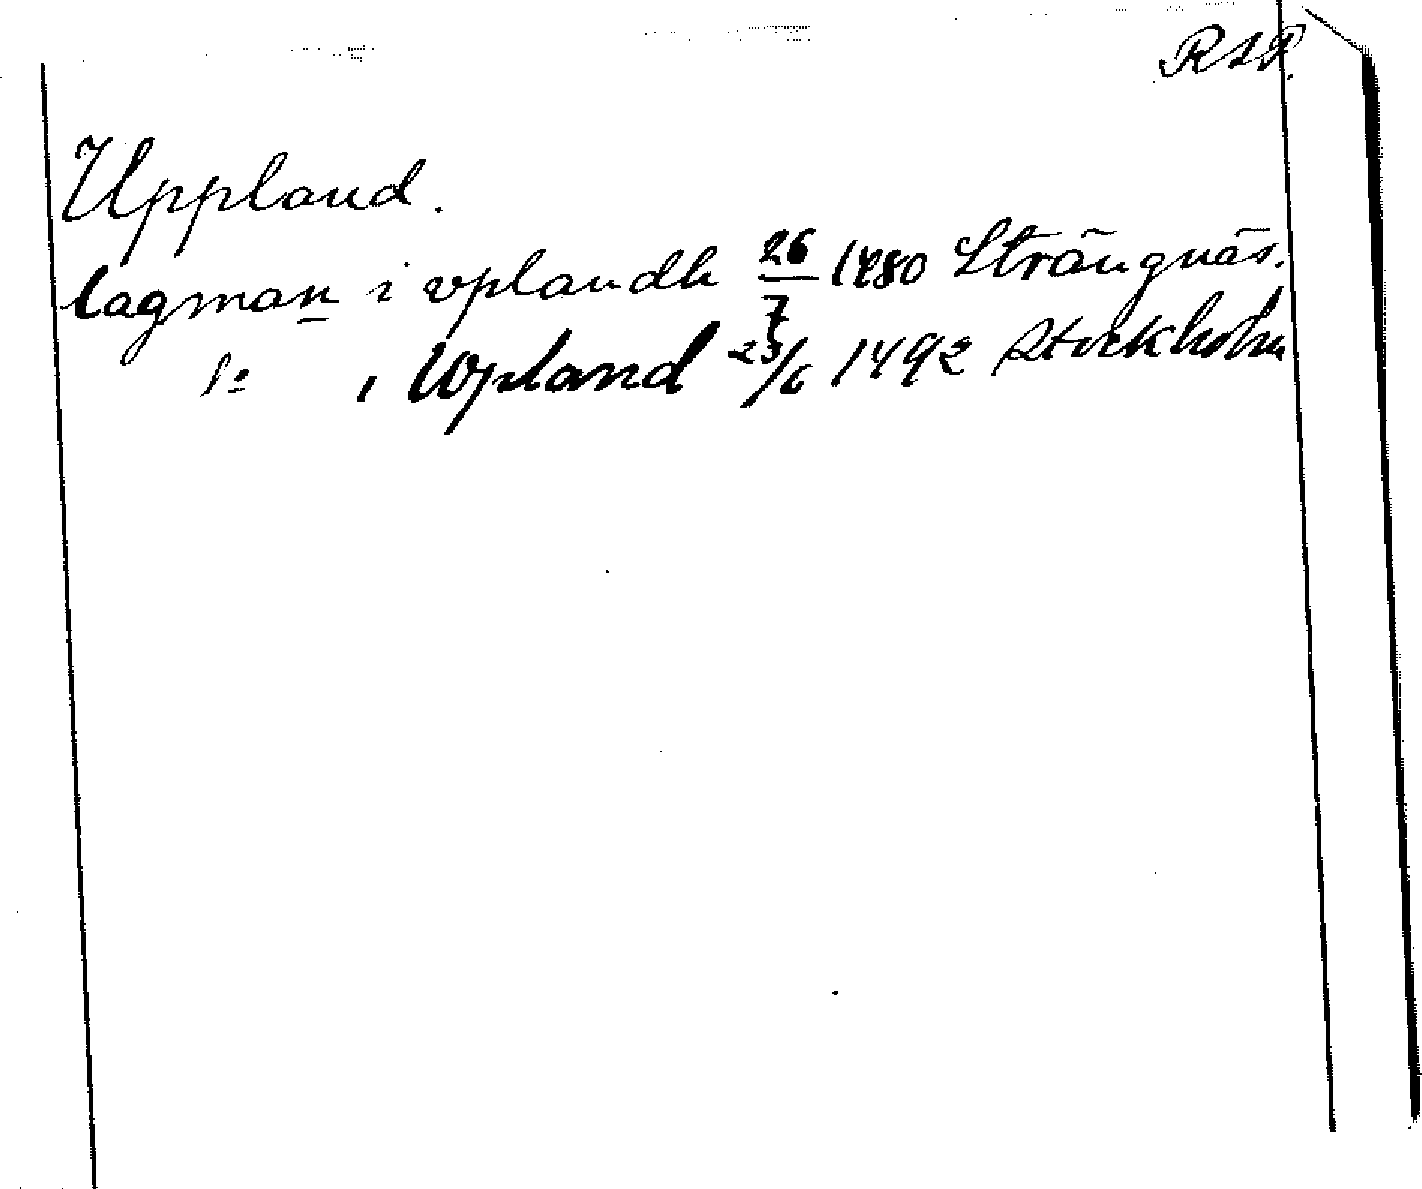 RAP.
Uppland.
lagman i vplandh 26/7 1480 Strängnäs.
i Wpland 23/6 1492 Stockholm